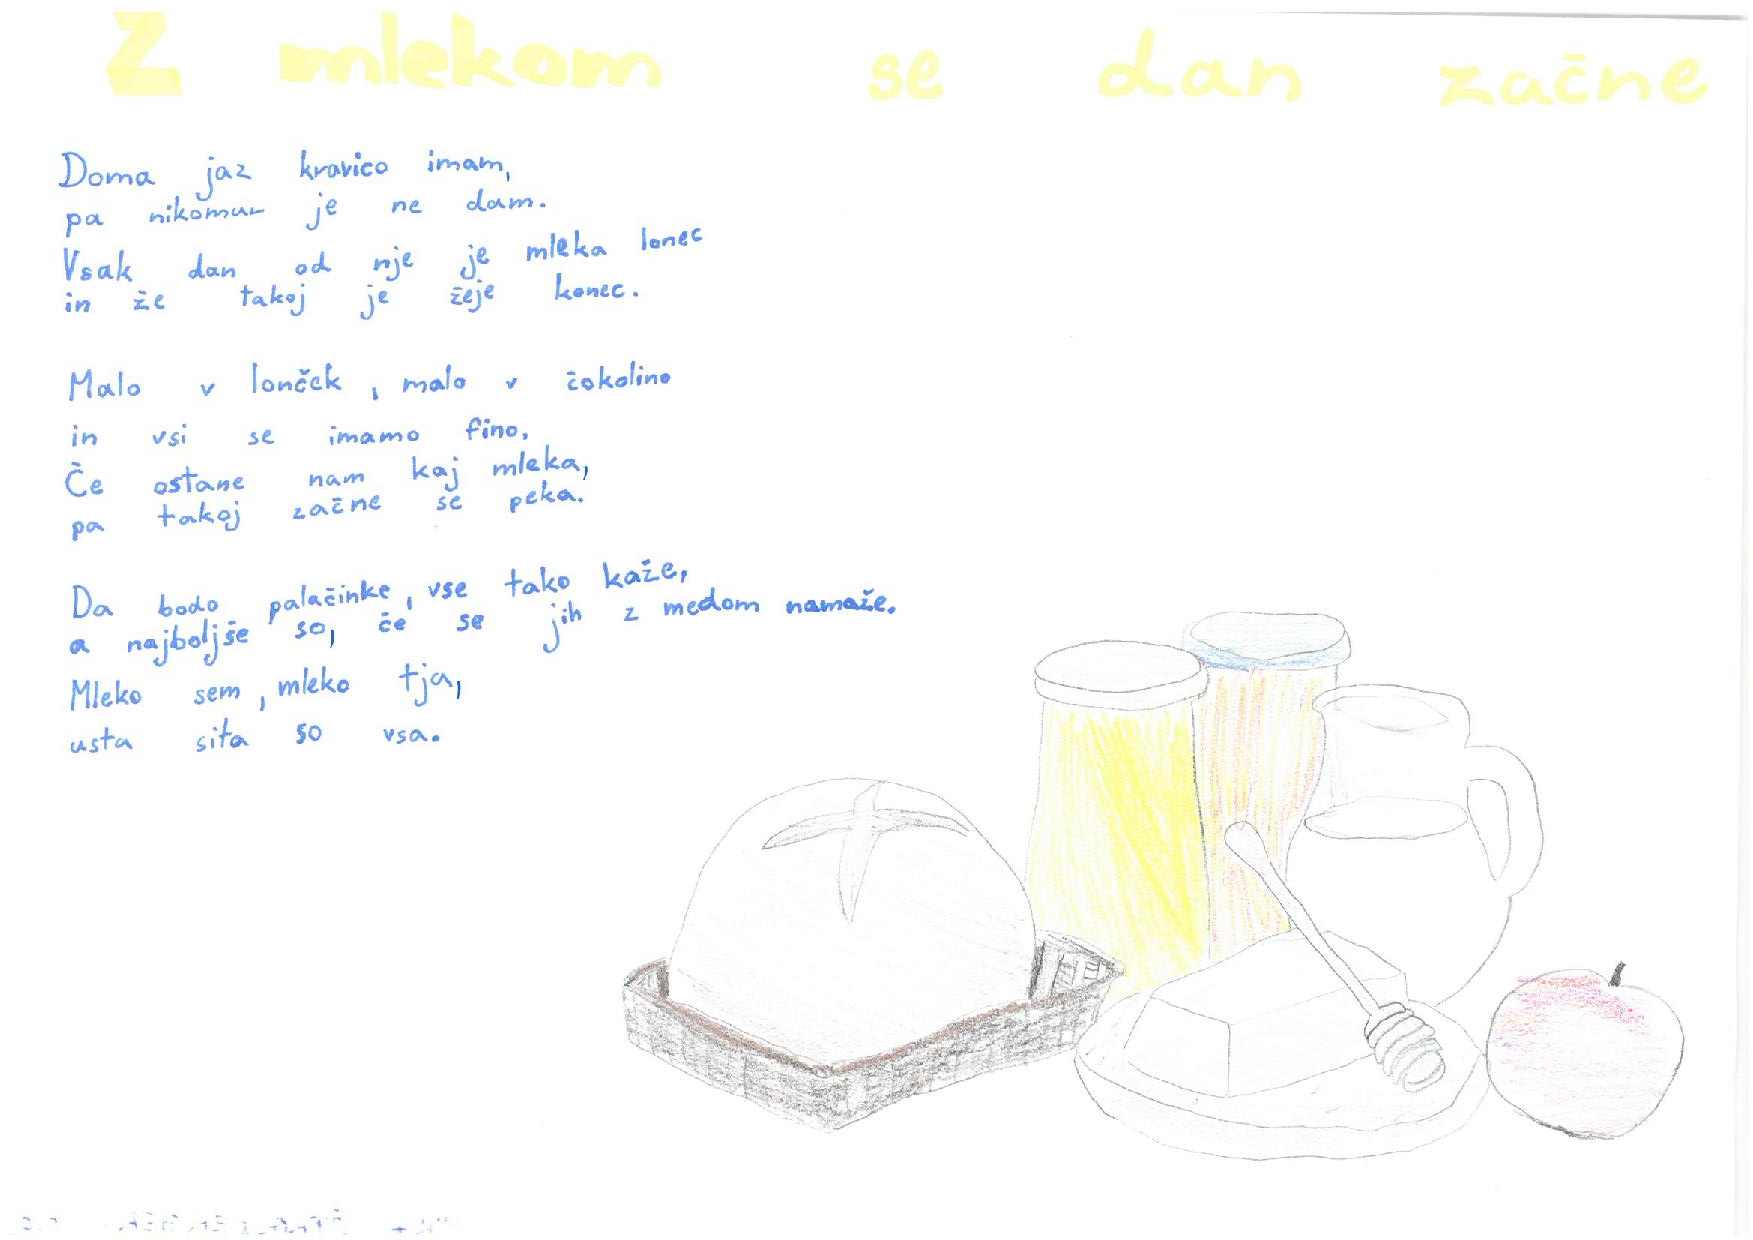 Z mlekom se dan začne
Doma jaz kravico imam,
pa nikomur je ne dam.
Vsak dan od nje je mleka lonec
in že takoj je žeje konec.
Malo v lonček, malo v čokolino
in vsi se imamo fino.
Če ostane nam kaj mleka,
pa takoj začne se peka.
Da bodo palačinke, vse tako kaže,
a najboljše so, če se jih z medom namaže.
Mleko sem, mleko tja,
usta sita so vsa.